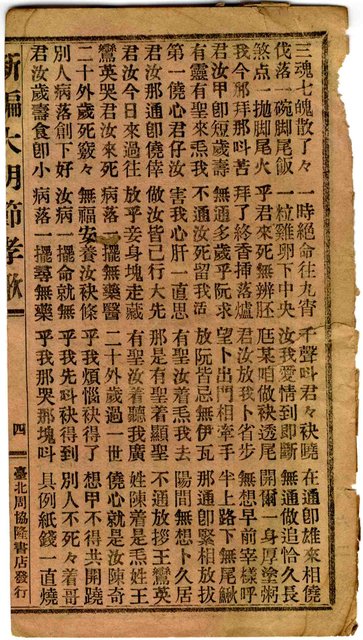 三魂七魄散了々 一時絕命往九宵 千聲叫君々袂曉 在通卽雄來相僥
伐落一碗脚尾飯 一粒雞卵下中央 汝我愛情到卽斷 無通做追恰久長
煞点一拋脚尾火 乎君來死無辨胚 某咱做袂透尾 開爾一身厚塗粥
我今那拜那叫苦 拜了終香插落爐 君汝放我卜省步 無想早前宰樣呼
君汝甲卽短歲壽 無通多歲乎阮求 望卜出門相牽手 半上路下無尾鰍
有靈有聖來炁我 不通汝死留我活 放阮皆忌無伊瓦 那通卽緊相放拔
第一僥心君仔汝 害我心肝一直思 有聖汝着炁我去 陽間無想卜久居
君汝那通卽僥倖 做汝皆已行大先 那是有聖着顯聖 不通放拵王鸞英
君汝今日來過往 放乎妾身塊走藏 有聖汝着聽我廣 姓陳着是炁姓王
鸞英哭君汝來死 病落一擺無藥醫 二十外歲過一世 僥心就是汝陳奇
二十外歲死竅々 無福安養汝袂條 乎我煩惱袂得了 想甲不得共開蹺
別人病落創下好 汝病一擺命就無 乎我先叫袂得到 別人不死々着哥
君汝歲壽食卽小 病落一擺尋無藥 乎我那哭那塊叫 具例紙錢一直燒
新編大明節孝歌 四 臺北周協隆書店發行